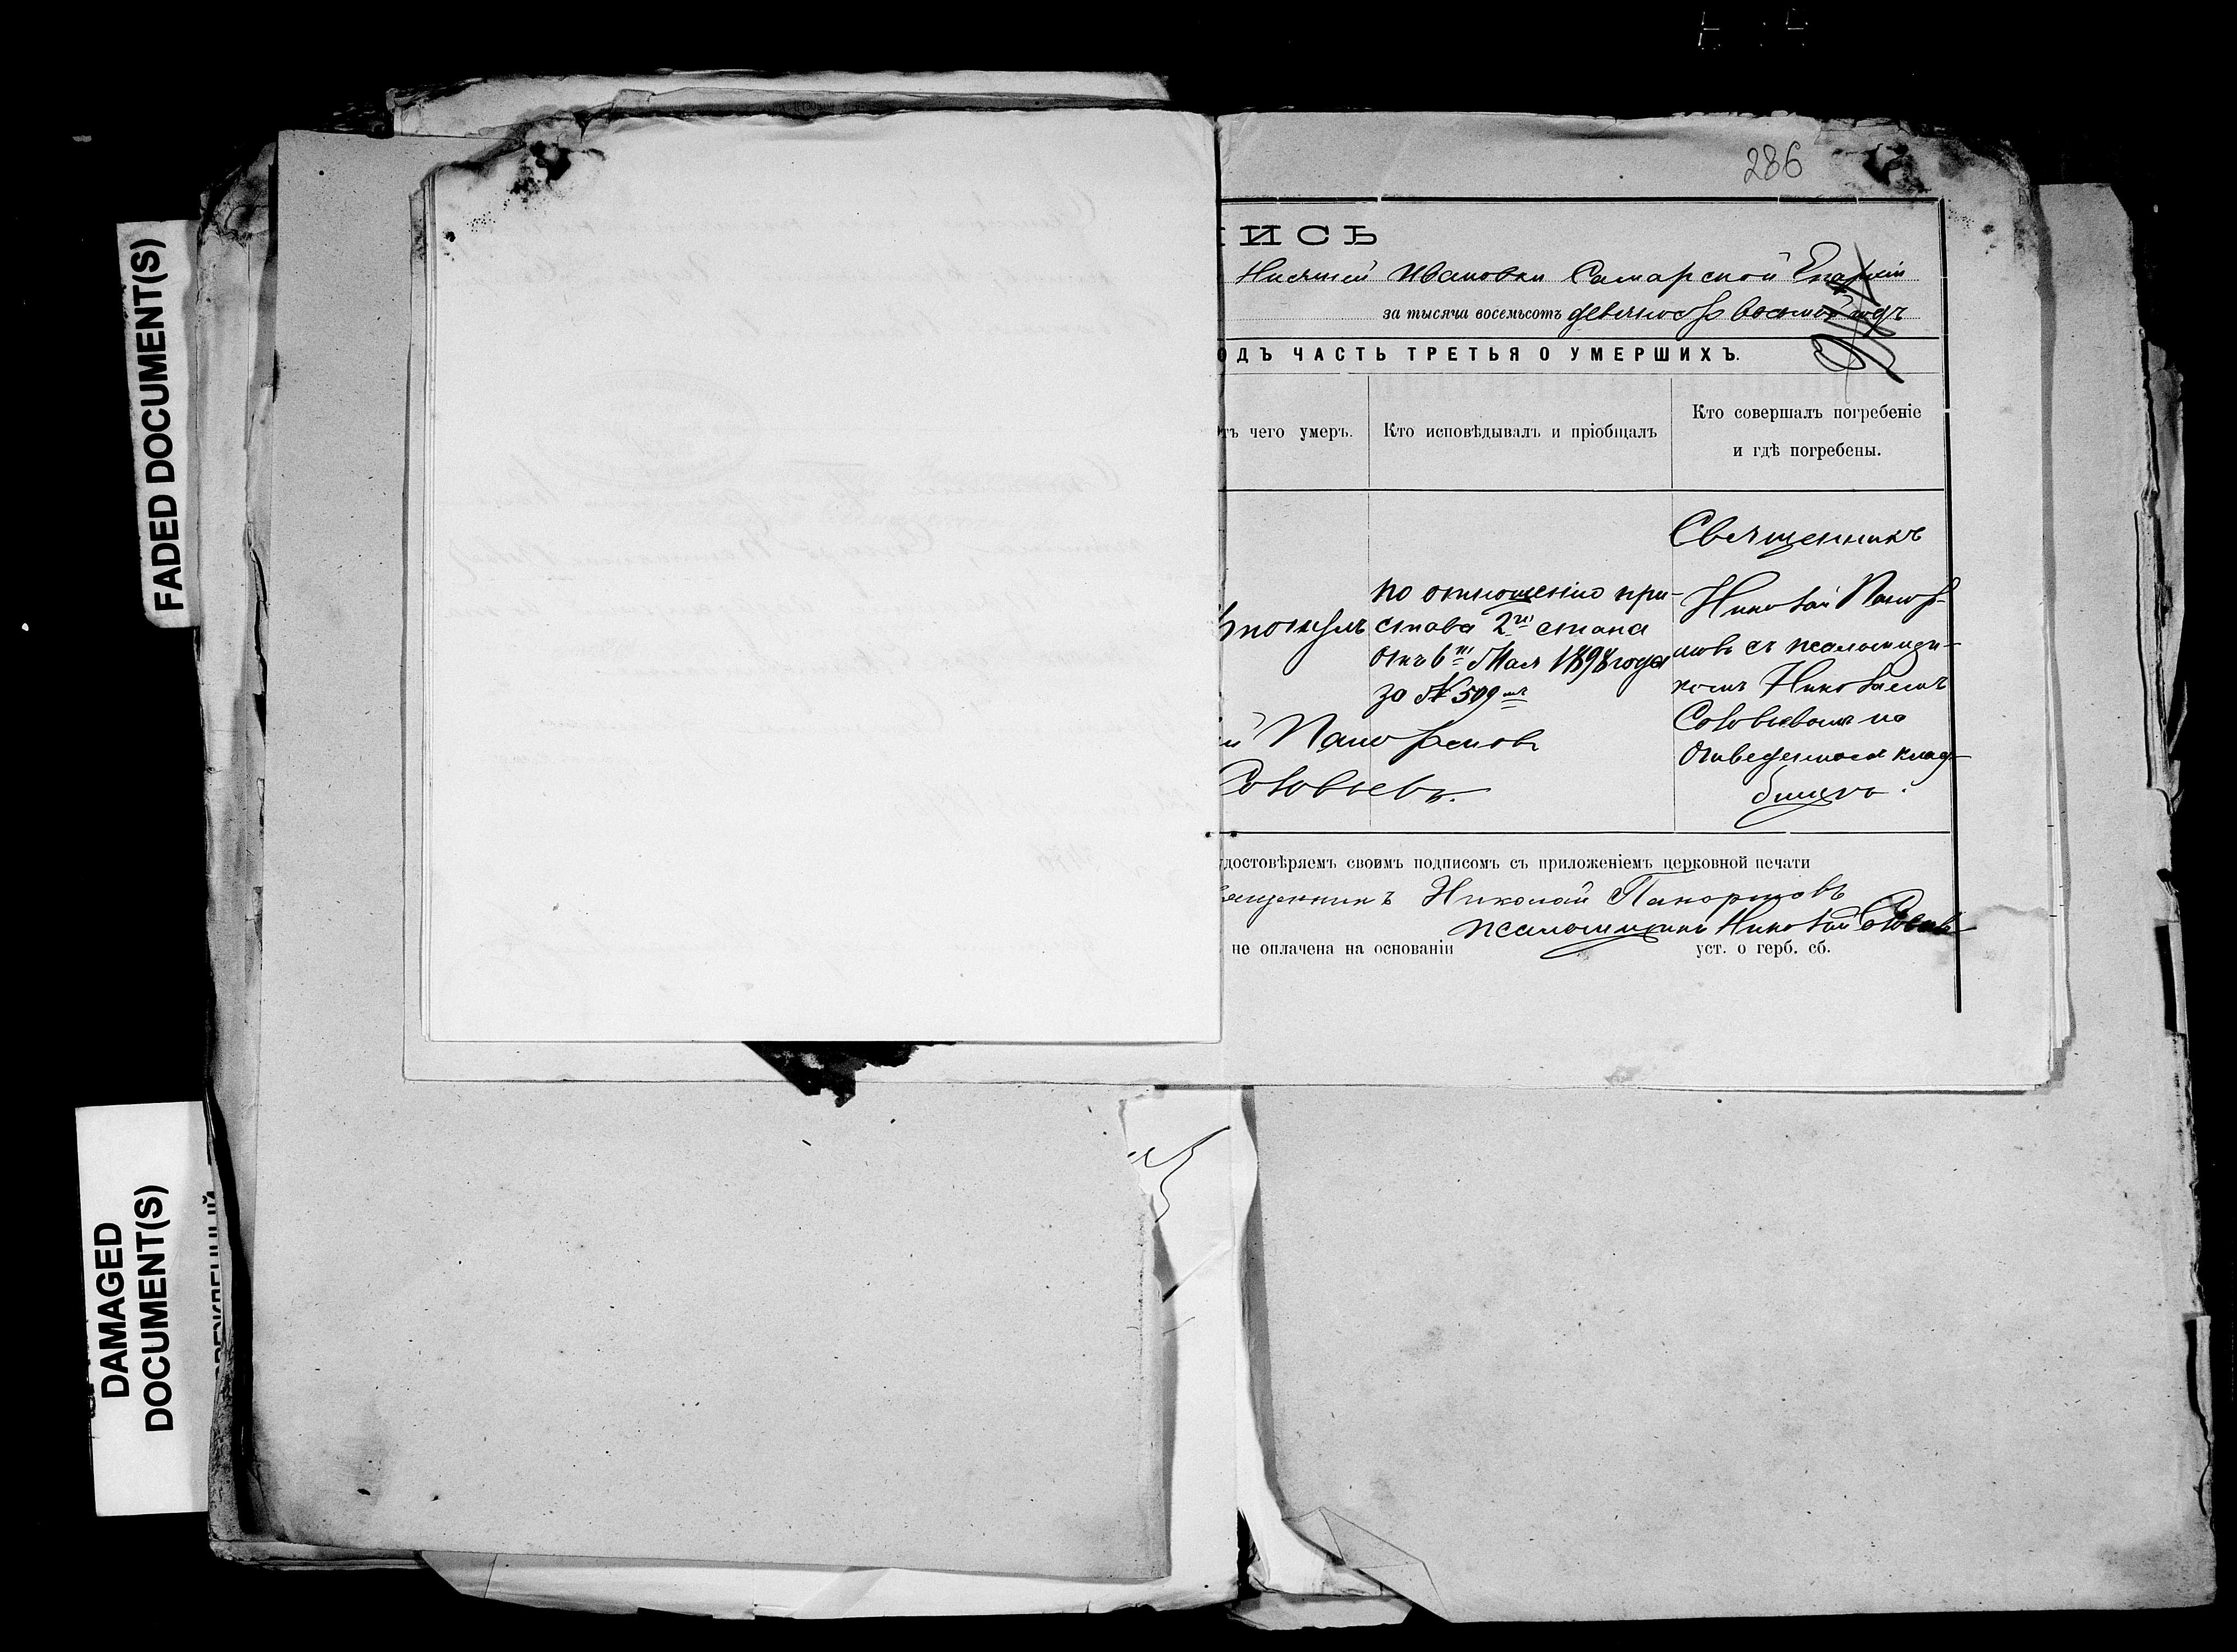 FADED DOCUMENT(S)
DAMAGED
DOCUMENT(S)
286
ИСЬ
Ивановки Самарской Епархіи
за тысяча восемьсотъ девяносто восьмой годъ
ОДЪ ЧАСТЬ ТРЕТЬЯ О УМЕРШИХЪ.
тъ чего умеръ.
Кто исповѣдывалъ и пріобщалъ
Кто совершалъ погребеніе
и гдѣ погребены.
по отношенію при-
става 2го стана
отъ 6го Мая 1898 года
за № 509мъ
Священникъ
Николай Панор-
мовъ съ псаломщи-
комъ Николаемъ
Соловьевымъ на
отведенномъ клад-
бищѣ.
й Панормовъ
Соловьевъ.
достовѣряемъ своимъ подписомъ съ приложеніемъ церковной печати
ященникъ Николай Панормовъ
псаломщикъ Николай Соловьевъ
не оплачена на основаніи уст. о герб. сб.